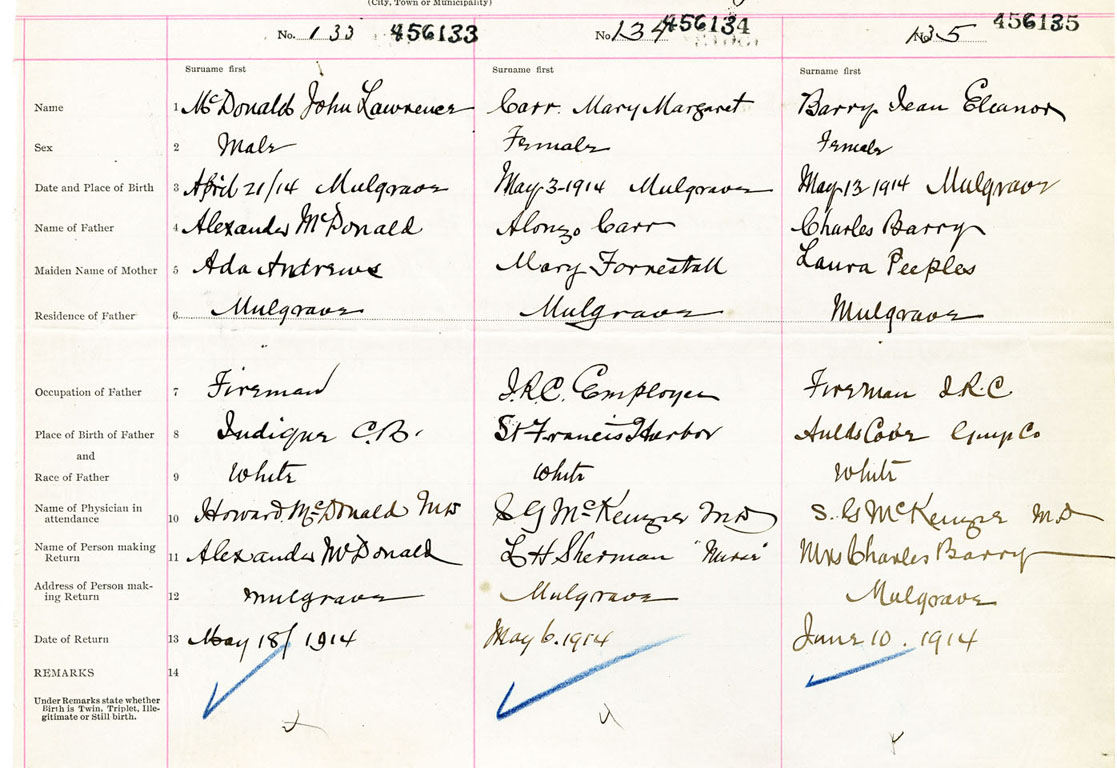 (City, Town or Municipality)
No. 133 456133
No. 134 456134
No. 135 456135
Surname first Surname first Surname first
Name 1 McDonald John Lawrence Carr Mary Margaret Barry Jean Eleanor
Sex 2 Male Female Female
Date and Place of Birth 3 April 21/14 Mulgrave May 3-1914 Mulgrave May 13 1914 Mulgrave
Name of Father 4 Alexander McDonald Alonzo Carr Charles Barry
Maiden Name of Mother 5 Ada Andrews Mary Forrestall Laura Peeples
Residence of Father 6 Mulgrave Mulgrave Mulgrave
Occupation of Father 7 Fireman I.R.C. Employee Fireman I.R.C
Place of Birth of Father 8 C.B. St Francis Harbor Aulds Cove Guys Co
and
Race of Father 9 White White White
Name of Physician in
attendance 10 Howard McDonald MD McKenzie MD S. G McKenzie M.D
Name of Person making
Return 11 Alexander McDonald L H Sherman "Nurse" Mrs Charles Barry
Address of Person mak-
ing Return 12 Mulgrave Mulgrave Mulgrave
Date of Return 13 May 18/1914 May 6.1914 June 10. 1914
REMARKS 14
Under Remarks state whether
Birth is Twin, Triplet, Ille-
gitimate or Still birth.